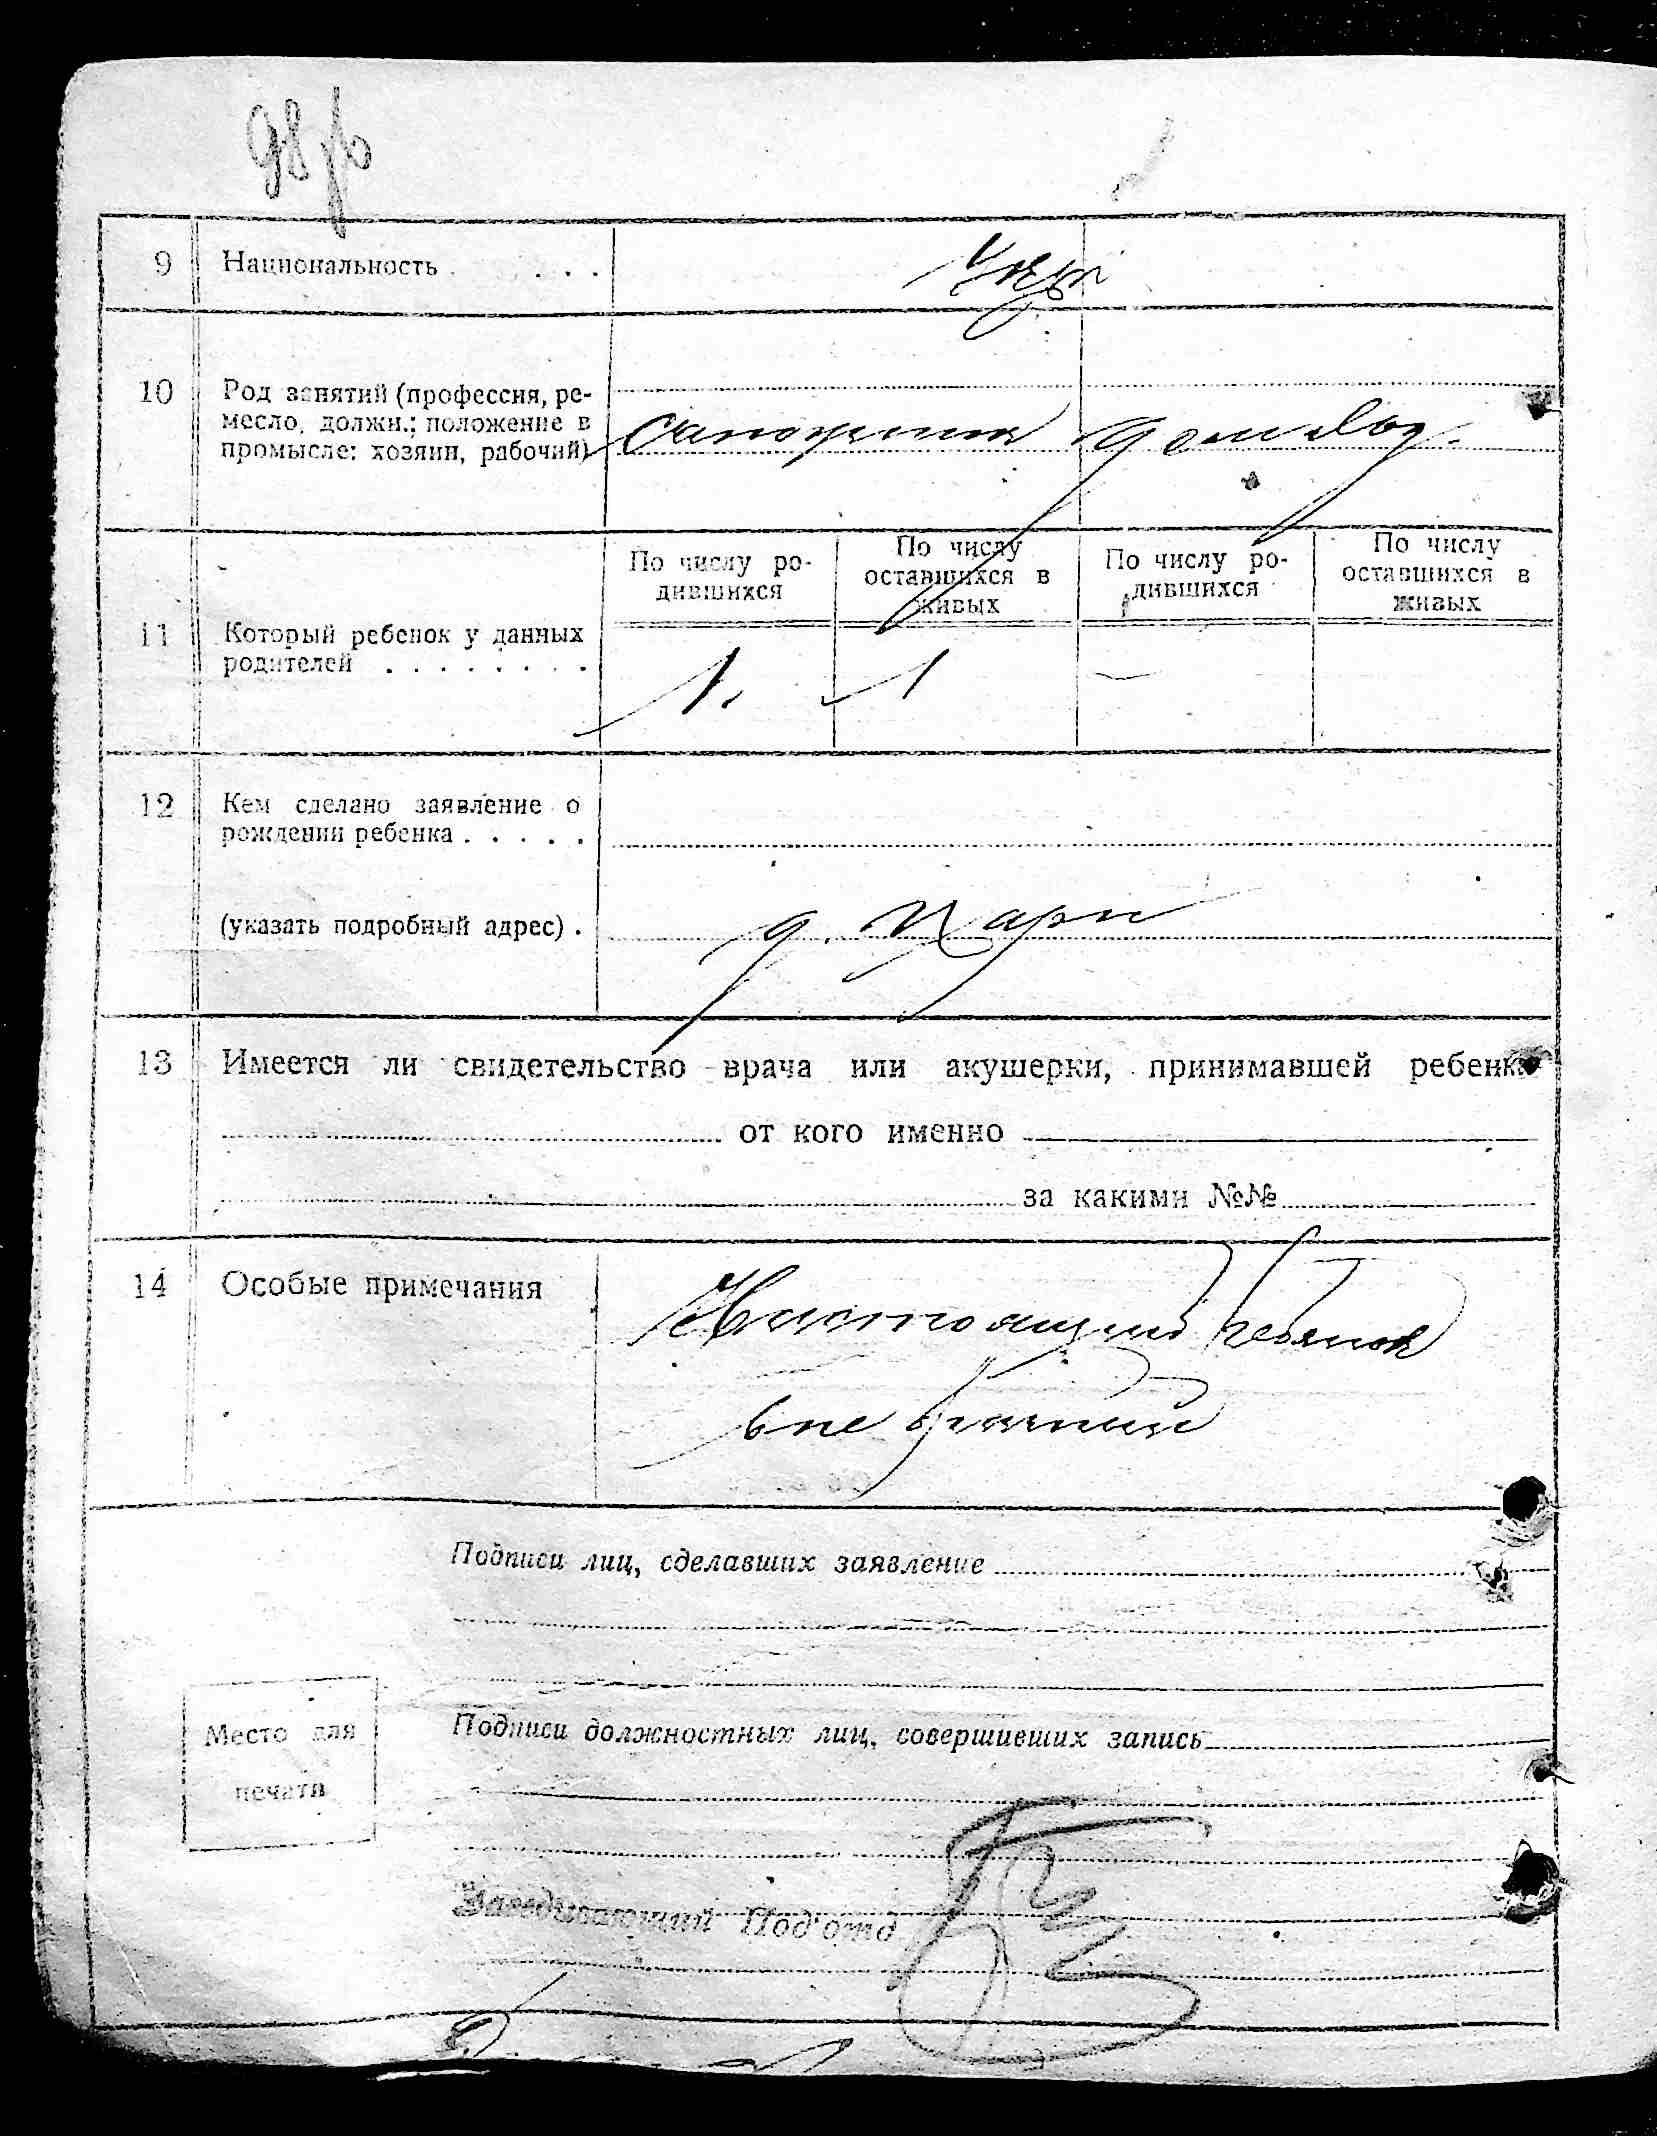 98
9 Национальность . . . . Укр
10 Род занятий (профессия, ре-
месло, должн.; положение в
промысле: хозяин, рабочий)
Сапожник домхоз.
По числу ро-
дившихся
По числу
оставшихся в
живых
По числу ро-
дившихся
По числу
оставшихся в
живых
11 Который ребенок у данных
родителей . . . . . . . .
1. 1 —
12 Кем сделано заявление о
рождении ребенка . . . . .
(указать подробный адрес) .
13 Имеется ли свидетельство врача или акушерки, принимавшей ребенка
от кого именно
за какими №№
14 Особые примечания
Настоящий ребенок
вне брачный
Подписи лиц, сделавших заявление
Место для
печати
Подписи должностных лиц, совершивших запись
Заведывающий Под'отд